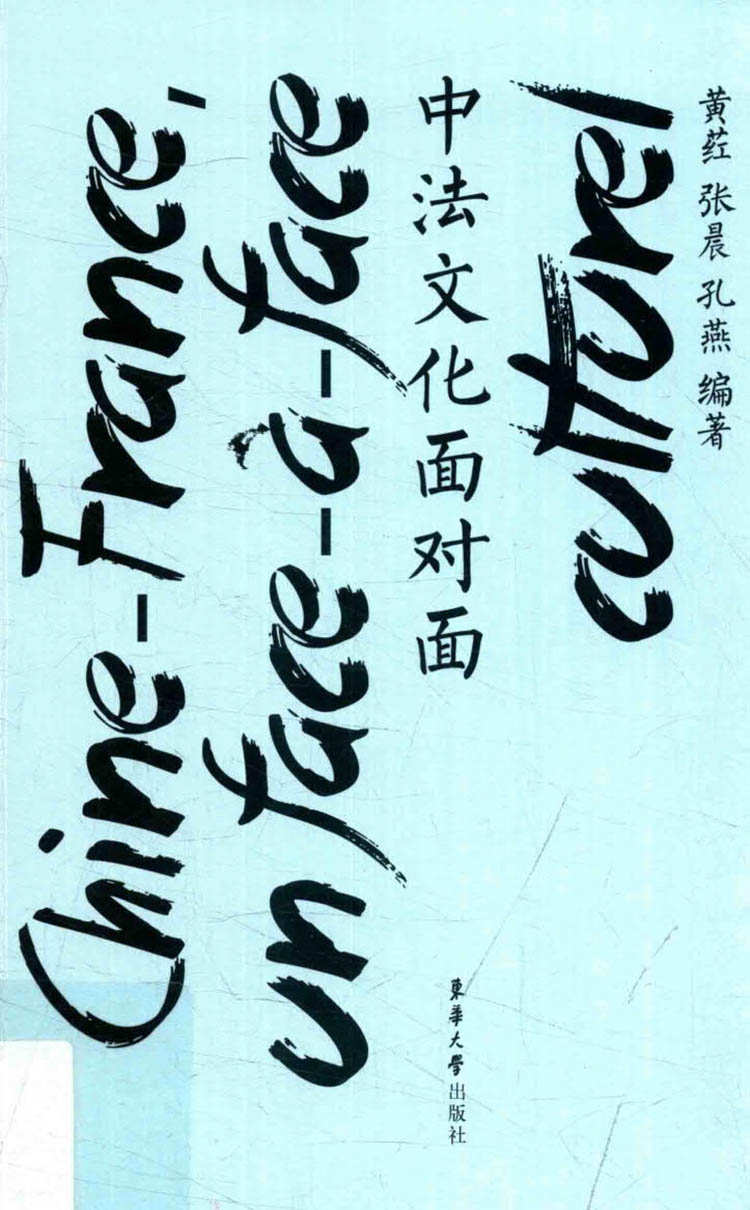 Chine-France,
un face-à-face
culturel
中法文化面对面
黄荭 张晨 孔燕 编著
東華大學出版社